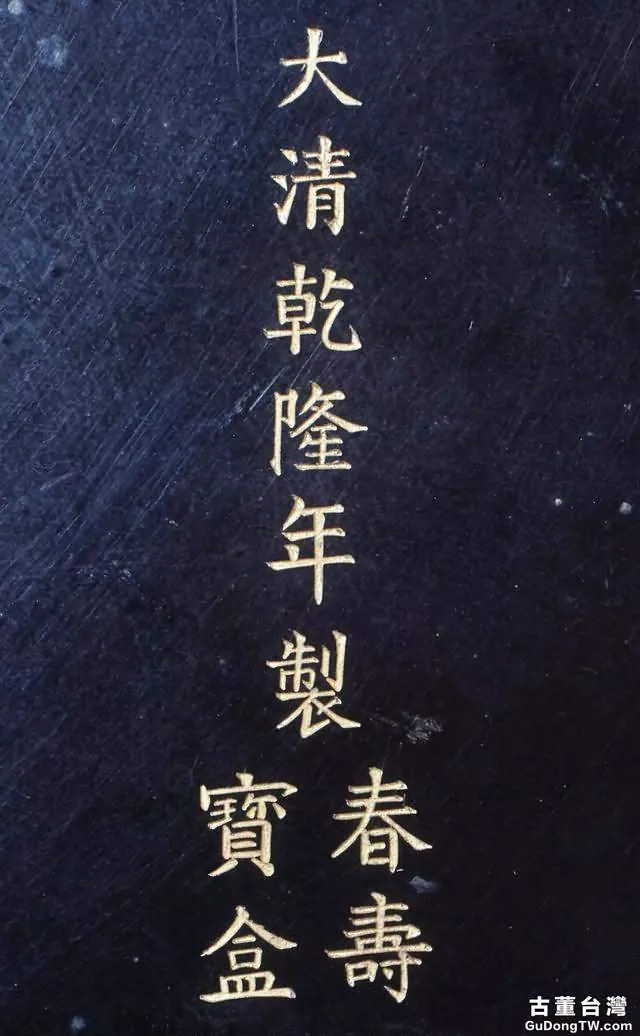 大清乾隆年製
春壽
寶盒
古董台灣
GuDongTW.com